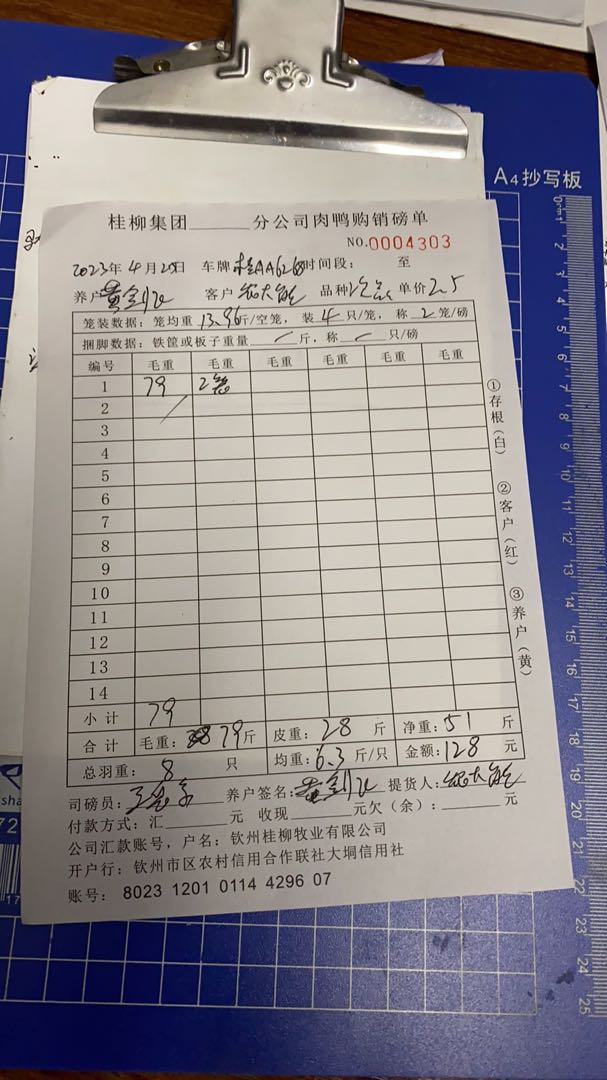 A4抄写板
桂柳集团______分公司肉鸭购销磅单
NO.0004303
2023年4月25日 车牌 桂AA6268 时间段: 至
养户 客户 品种 单价2.5
笼装数据: 笼均重13.96斤/空笼, 装4只/笼, 称2笼/磅
捆脚数据: 铁筐或板子重量 / 斤, 称 / 只/磅
编号 毛重 毛重 毛重 毛重 毛重 毛重
1 79 2笼
2
3
4
5
6
7
8
9
10
11
12
13
14
小计 79
合计 毛重: 79斤 皮重: 28斤 净重: 51斤
总羽重: 8只 均重: 6.3斤/只 金额: 128元
司磅员: 养户签名: 提货人:
付款方式: 汇______元 收现______元欠(余): ______元
公司汇款账号, 户名: 钦州桂柳牧业有限公司
开户行: 钦州市区农村信用合作联社大垌信用社
账号: 8023 1201 0114 4296 07
①存根(白)
②客户(红)
③养户(黄)